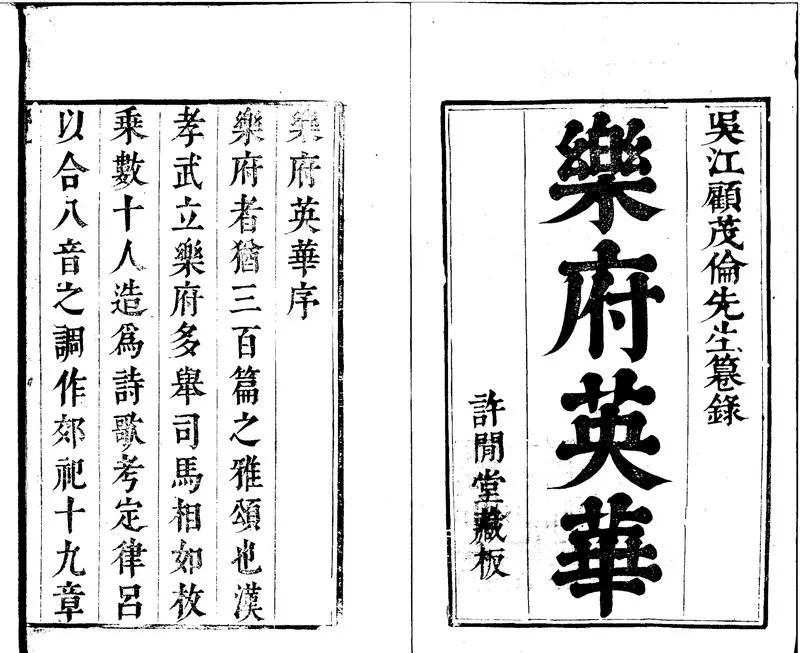 吳江顧茂倫先生纂錄
樂府英華
許閒堂藏板
樂府英華序
樂府者猶三百篇之雅頌也漢
孝武立樂府多舉司馬相如枚
乘數十人造爲詩歌考定律呂
以合八音之調作郊祀十九章